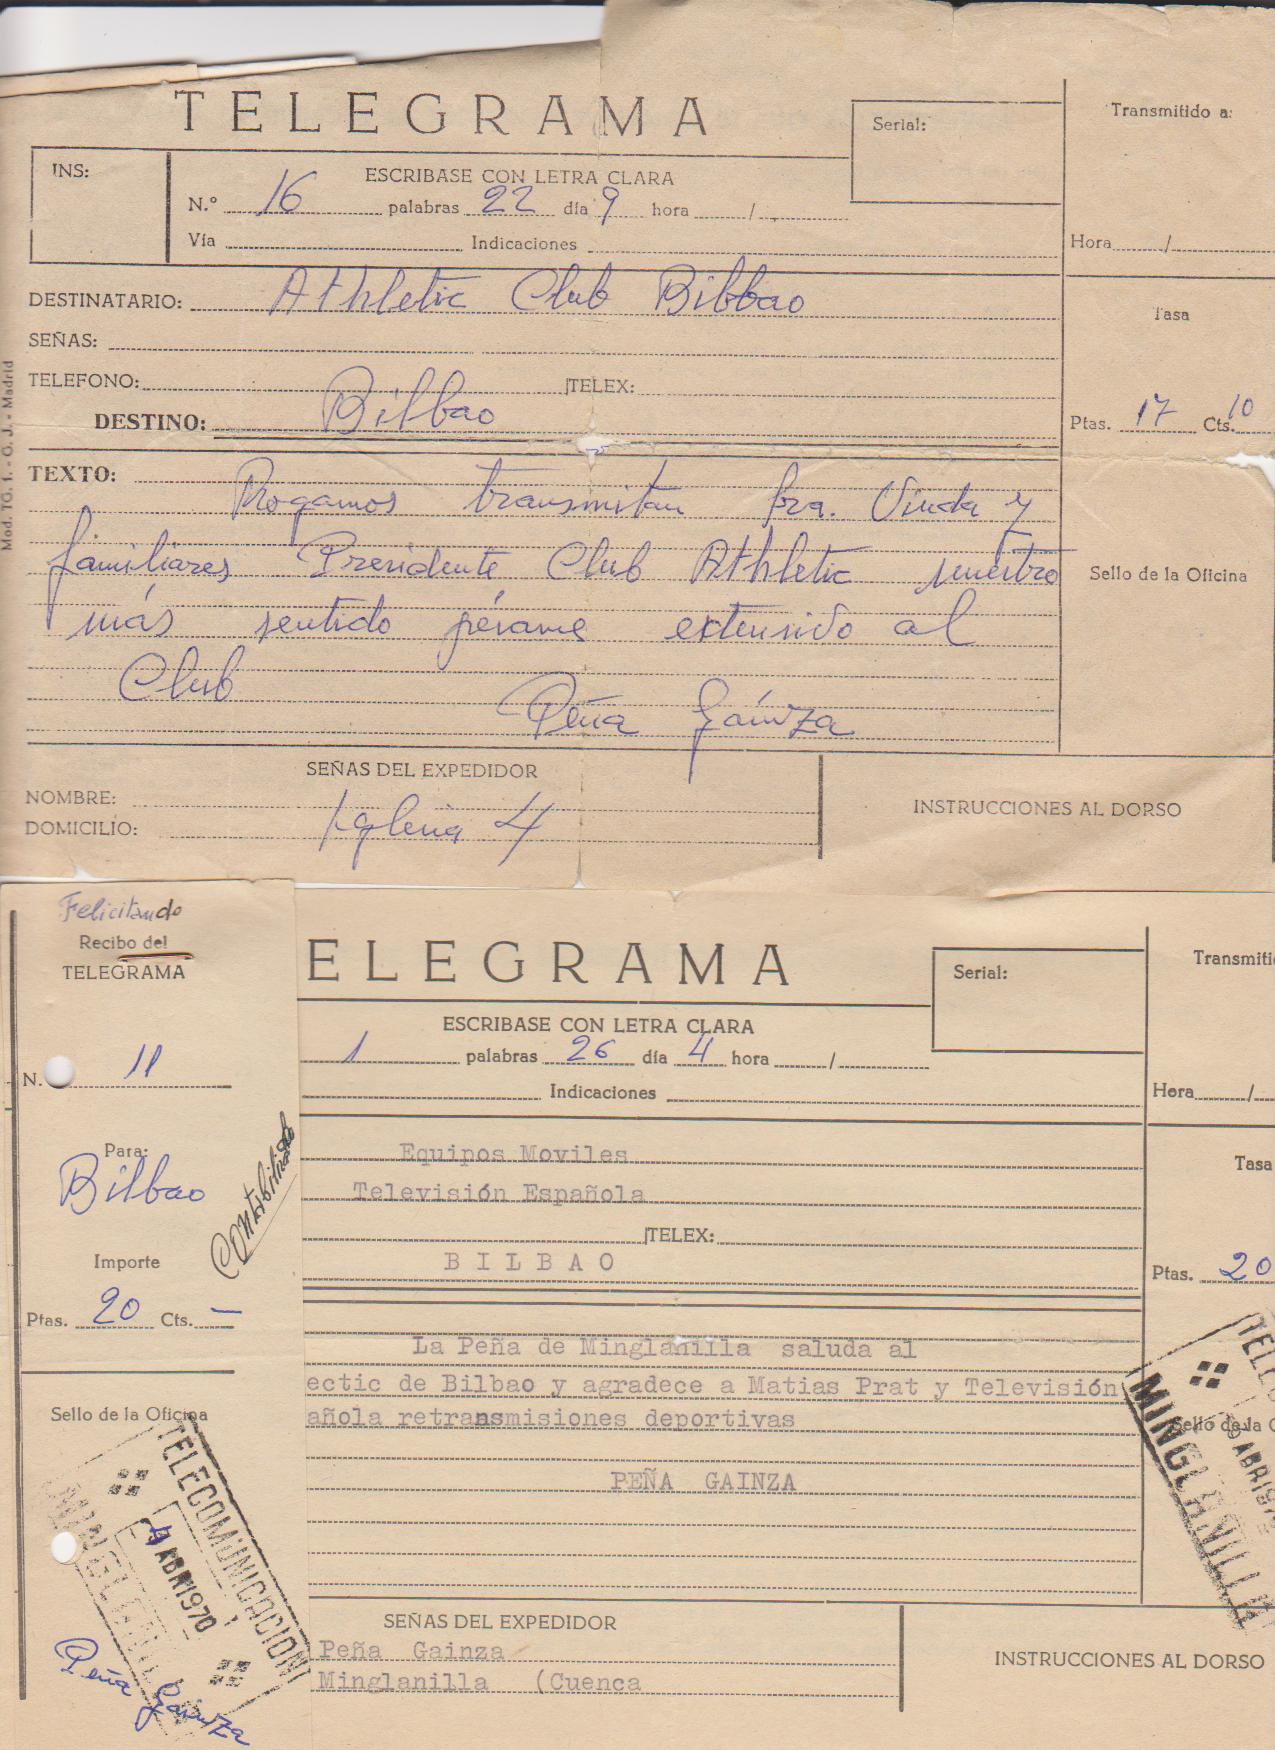 TELEGRAMA
Serial:
Transmitido a:
INS:
ESCRIBASE CON LETRA CLARA
N.º 16 palabras 22 día 9 hora /
Vía Indicaciones
Hora /
DESTINATARIO: Athletic Club Bilbao
SEÑAS:
Tasa
TELEFONO: TELEX:
DESTINO: Bilbao
Ptas. 17 Cts. 10
Mod. TG. 1. - G. J. - Madrid
TEXTO: Rogamos transmitan Sra. Viuda y
familiares Presidente Club Athletic nuestro
más sentido pésame extensivo al
Club
Peña Gaínza
Sello de la Oficina
SEÑAS DEL EXPEDIDOR
NOMBRE:
DOMICILIO: Iglesia 4
INSTRUCCIONES AL DORSO
Felicitando
Recibo del
TELEGRAMA
N. 11
Para:
Bilbao
Contabilizado
Importe
Ptas. 20 Cts. —
Sello de la Oficina
TELECOMUNICACION
4 ABR 1970
MINGLANILLA
Peña Gaínza
ELEGRAMA
Serial:
Transmiti
ESCRIBASE CON LETRA CLARA
1 palabras 26 día 4 hora /
Indicaciones
Hora /
Equipos Moviles
Televisión Española
Tasa
TELEX:
BILBAO
Ptas. 20
La Peña de Minglanilla saluda al
ectic de Bilbao y agradece a Matias Prat y Televisión
añola retransmisiones deportivas
PEÑA GAINZA
Sello de la O
TELECO
ABR 197
MINGLANILLA
SEÑAS DEL EXPEDIDOR
Peña Gainza
Minglanilla (Cuenca
INSTRUCCIONES AL DORSO